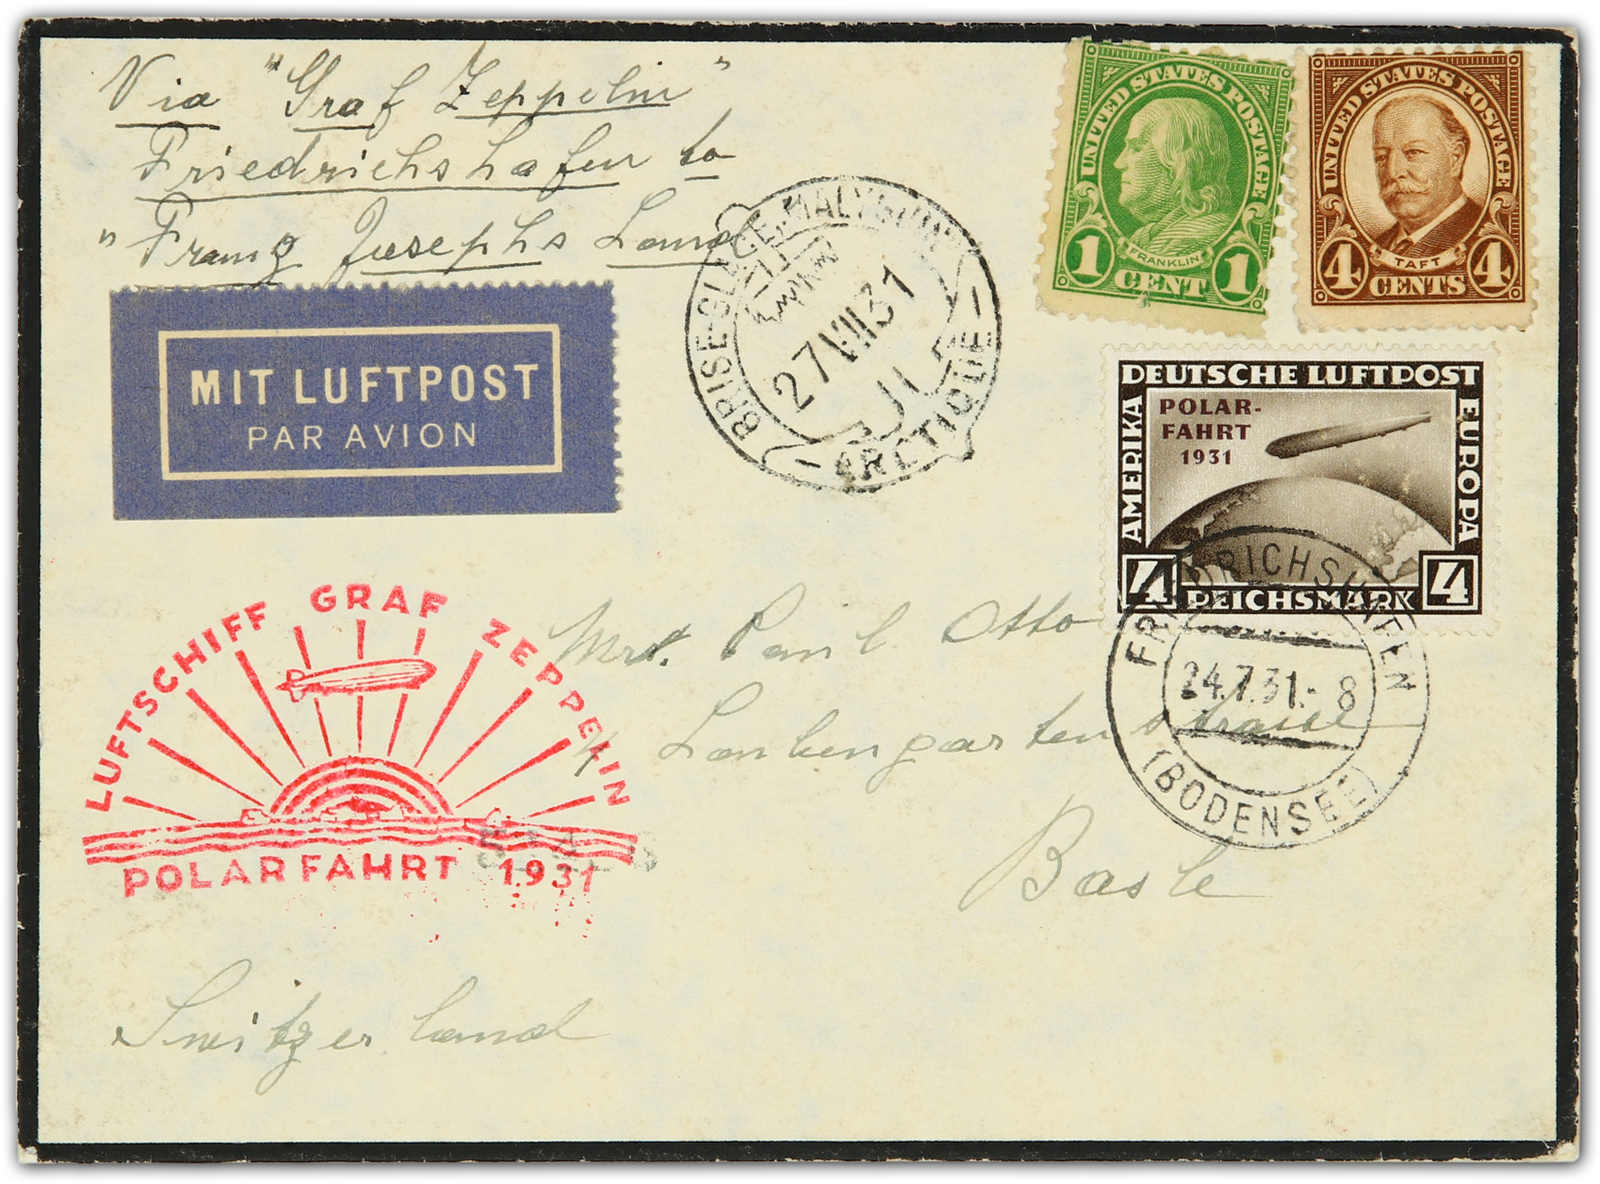 Via "Graf Zeppelin"
Friedrichshafen to
"Franz Josephs Land
MIT LUFTPOST
PAR AVION
BRISE-GLACE "MALYGUIN"
27 VII 31
- ARCTIQUE -
UNITED STATES POSTAGE
FRANKLIN
1 CENT 1
UNITED STATES POSTAGE
TAFT
4 CENTS 4
DEUTSCHE LUFTPOST
AMERIKA
EUROPA
POLAR-
FAHRT
1931
4 REICHSMARK 4
FRIEDRICHSHAFEN
24.7.31.- 8
(BODENSEE)
LUFTSCHIFF GRAF ZEPPELIN
POLARFAHRT 1931
Paul Otto
4 Laubengartenstrasse
Basle
Switzerland